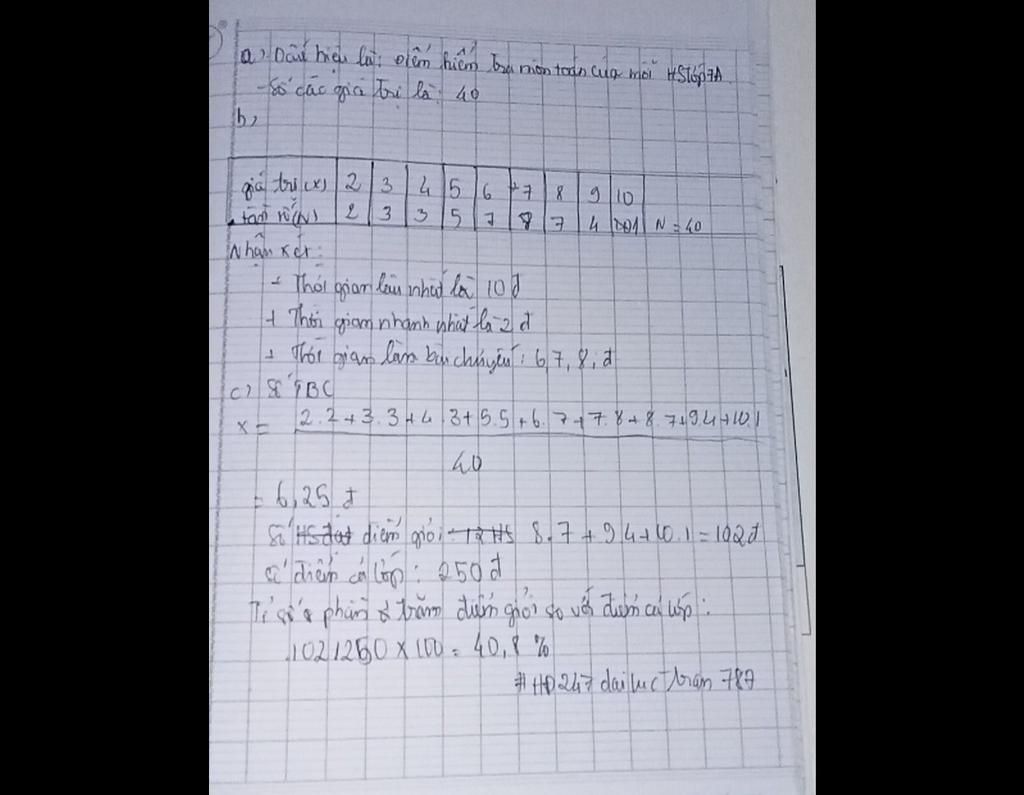 a, Dấu hiệu là: Điểm kiểm tra môn toán của mỗi HS lớp 7A
- Số các giá trị là: 40
b,
giá trị (x) 2 3 4 5 6 7 8 9 10
tần số (N) 2 3 3 5 7 8 7 4 1 N = 40
Nhận xét:
+ Thời gian lâu nhất là 10 đ
+ Thời gian nhanh nhất là 2 đ
+ Thời gian làm bài chủ yếu: 6, 7, 8, đ
c) Số TBC
x = 2.2+3.3+4.3+5.5+6.7+7.8+8.7+9.4+10.1
40
= 6,25 đ
Số điểm giỏi 8.7+9.4+10.1=102đ
số điểm cả lớp: 250đ
Tỉ số phần trăm điểm giỏi so với điểm cả lớp:
102:250 x 100 = 40,8 %
# HD247